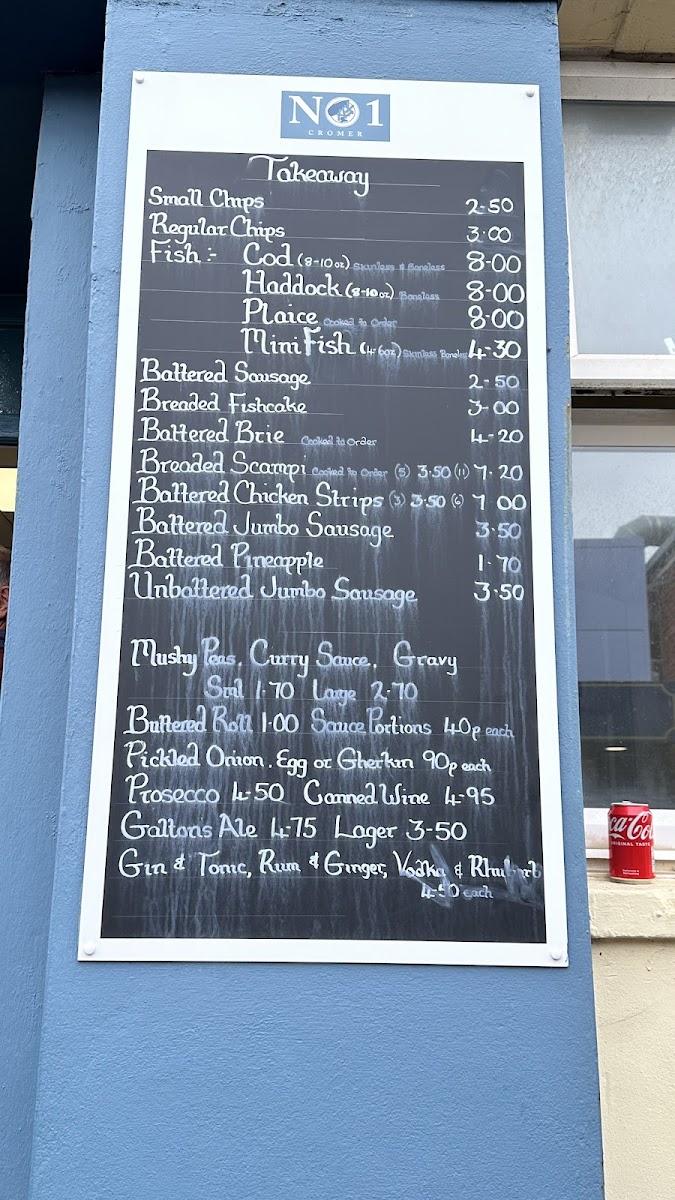 NO1
CROMER
Takeaway
Small Chips 2-50
Regular Chips 3·00
Fish :- Cod (8-10oz) Skinless & Boneless 8-00
Haddock (8-10oz) Boneless 8-00
Plaice Cooked to Order 8-00
Mini Fish (4-6oz) Skinless Boneless 4-30
Battered Sausage 2-50
Breaded Fishcake 3-00
Battered Brie Cooked to Order 4-20
Breaded Scampi Cooked to Order (5) 3.50 (11) 7-20
Battered Chicken Strips (3) 3-50 (6) 7 00
Battered Jumbo Sausage 3-50
Battered Pineapple 1-70
Unbattered Jumbo Sausage 3-50
Mushy Peas, Curry Sauce, Gravy
Sml 1-70 Large 2-70
Buttered Roll 1·00 Sauce Portions 40p each
Pickled Onion, Egg or Gherkin 90p each
Prosecco 4-50 Canned Wine 4-95
Galtons Ale 4-75 Lager 3-50
Gin & Tonic, Rum & Ginger, Vodka & Rhubarb
4-50 each
ca-Co
ORIGINAL TASTE